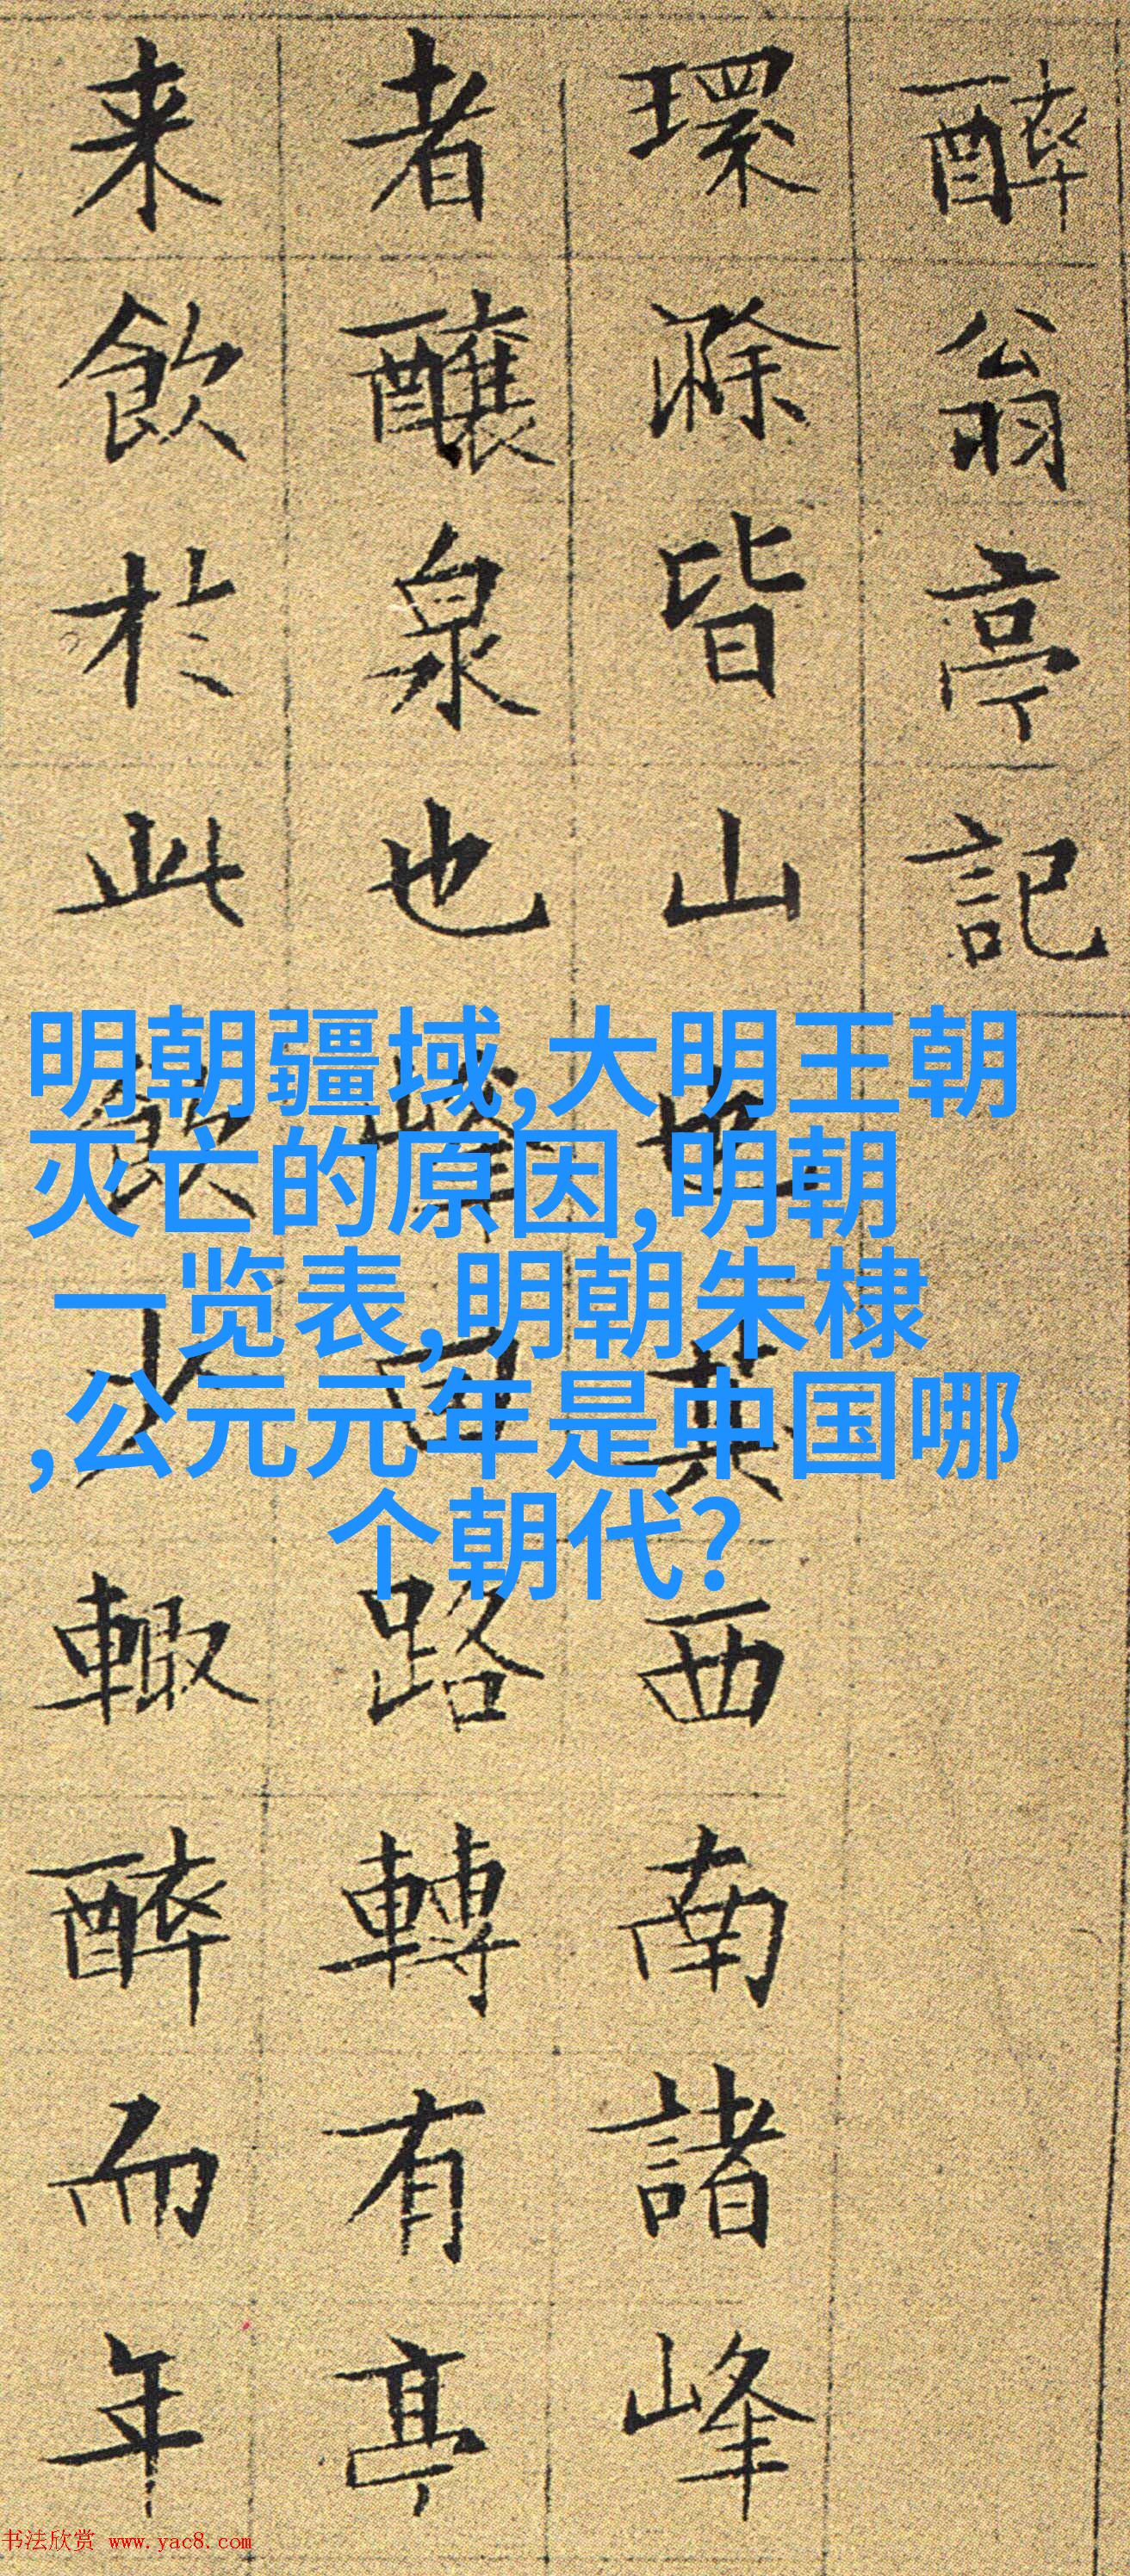 醉翁亭記
環滁皆山也其西南諸峰
者釀泉也峰回路轉有亭
来飲於此飲少輙醉而年
明朝疆域,大明王朝
灭亡的原因,明朝
一览表,明朝朱棣
,公元元年是中国哪
个朝代?
书法欣赏 www.yac8.com